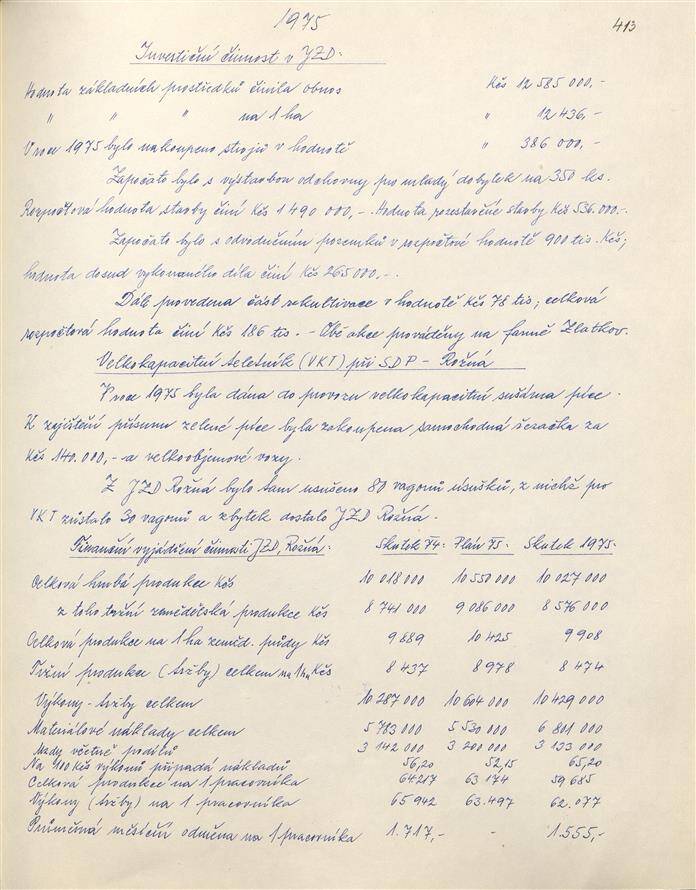 1975
413
Investiční činnost v JZD:
Hodnota základních prostředků činila obnos Kčs 12 585 000,-
" " " na 1 ha " 12 436,-
V roce 1975 bylo nakoupeno strojů v hodnotě " 386 000,-
Započato bylo s výstavbou odchovny pro mladý dobytek na 350 ks.
Rozpočtová hodnota stavby činí Kčs 1 490 000,- - Hodnota rozestavěné stavby Kčs 536.000.-
Započato bylo s odvodněním pozemků v rozpočtové hodnotě 900 tis. Kčs;
hodnota dosud vykonaného díla činí Kčs 265 000,-.
Dále provedena část rekultivace v hodnotě Kčs 78 tis; celková
rozpočtová hodnota činí Kčs 186 tis. - Obě akce prováděny na farmě Zlatkov.
Velkokapacitní teletník (VKT) při SDP - Rožná
V roce 1975 byla dána do provozu velkokapacitní sušárna píce.
K zajištění přísunu zelené píce byla zakoupena samochodná řezačka za
Kčs 140.000,- a velkoobjemové vozy.
Z JZD Rožná bylo tam usušeno 80 vagonů úsušků, z nichž pro
VKT zůstalo 30 vagonů a zbytek dostalo JZD Rožná.
Finanční vyjádření činnosti JZD, Rožná: Skutek 74: Plán 75: Skutek 1975:
Celková hrubá produkce Kčs 10 018 000 10 550 000 10 027 000
z toho tržní zemědělská produkce Kčs 8 741 000 9 086 000 8 576 000
Celková produkce na 1 ha zeměd. půdy Kčs 9 889 10 425 9 908
Tržní produkce (tržby) celkem na 1 ha Kčs 8 437 8 978 8 474
Výkony - tržby celkem 10 287 000 10 604 000 10 429 000
Materiálové náklady celkem 5 783 000 5 530 000 6 801 000
Mzdy včetně podílů 3 142 000 3 200 000 3 133 000
Na 100 Kčs výkonů připadá nákladů 56,20 52,15 65,20
Celková produkce na 1 pracovníka 64217 63 174 59 685
Výkony (tržby) na 1 pracovníka 65 942 63.497 62.077
Průměrná měsíční odměna na 1 pracovníka 1.717,- - 1.555,-